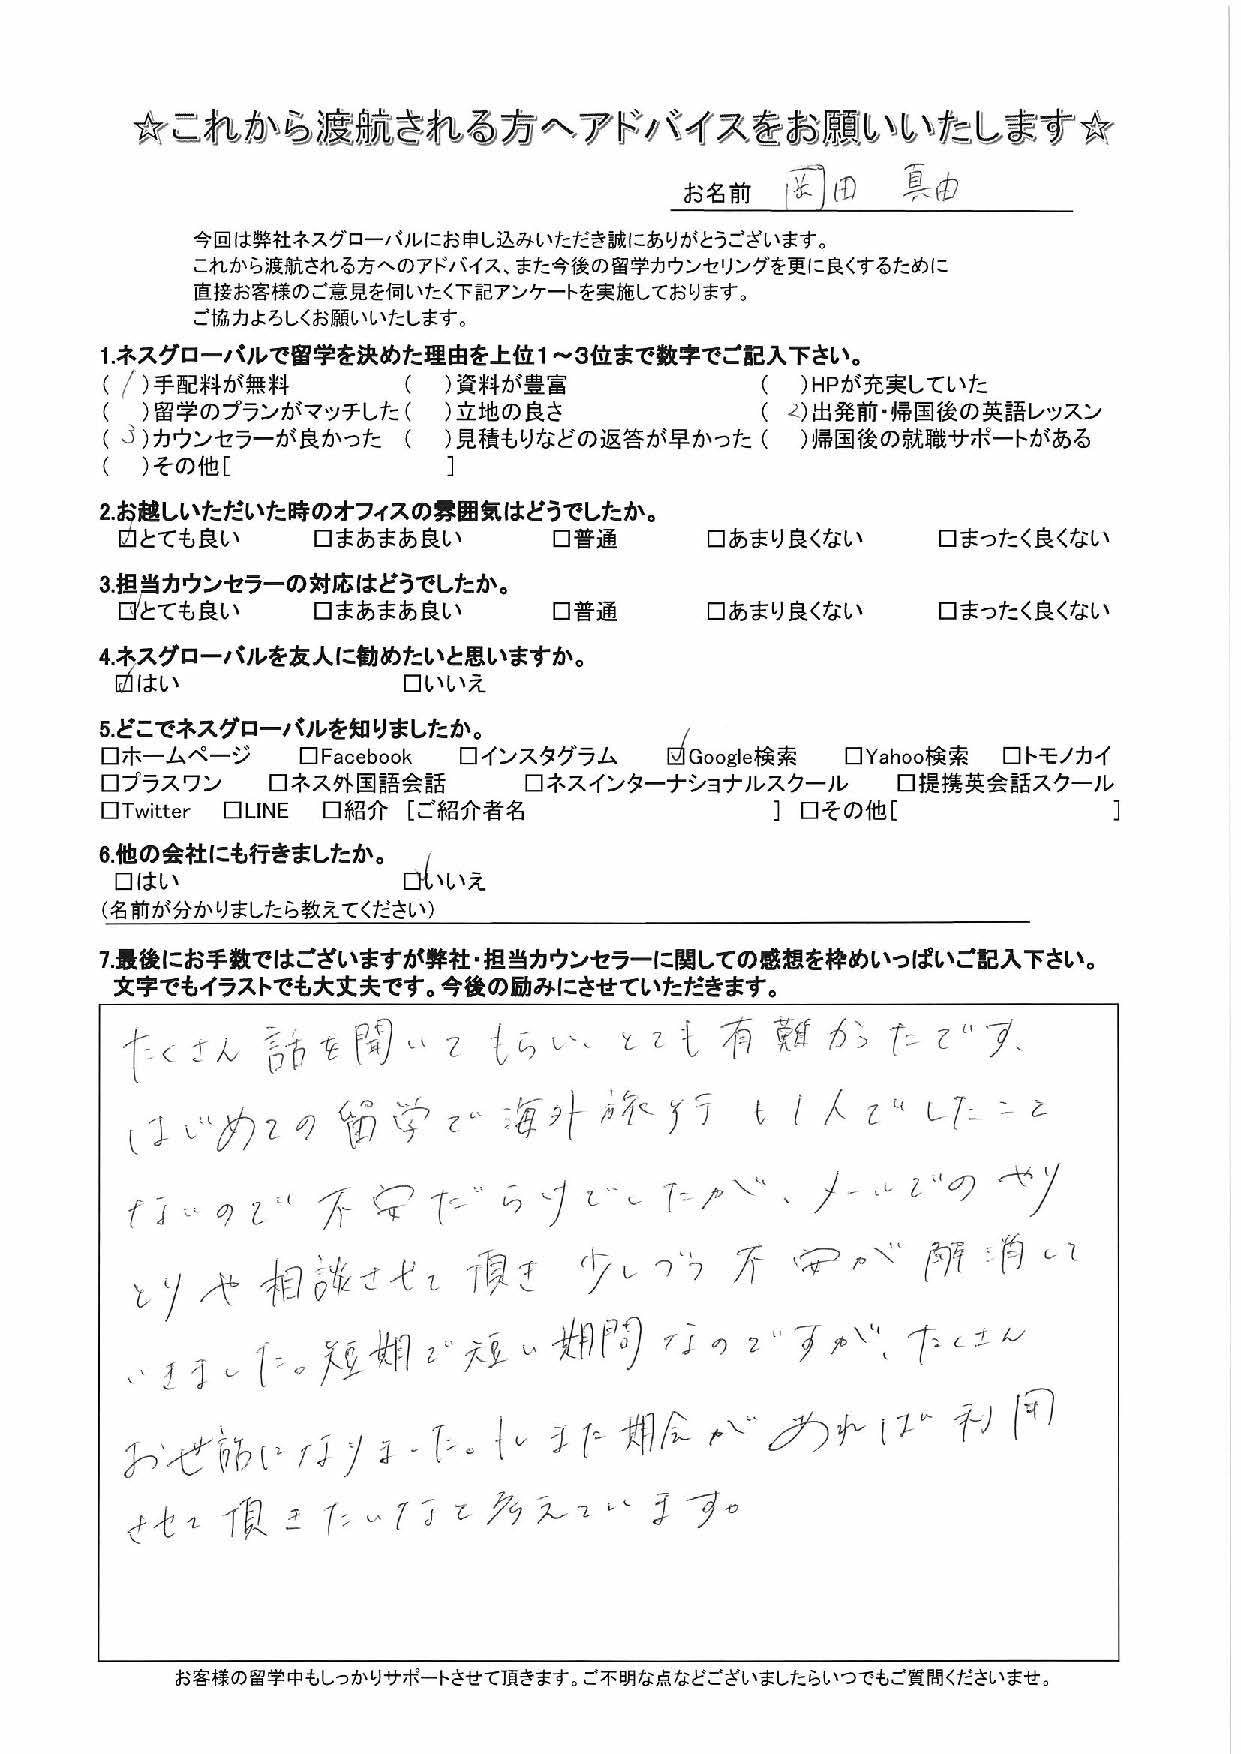 ☆これから渡航される方へアドバイスをお願いいたします☆
お名前 岡田 真由
今回は弊社ネスグローバルにお申し込みいただき誠にありがとうございます。
これから渡航される方へのアドバイス、また今後の留学カウンセリングを更に良くするために
直接お客様のご意見を伺いたく下記アンケートを実施しております。
ご協力よろしくお願いいたします。
1.ネスグローバルで留学を決めた理由を上位1～3位まで数字でご記入下さい。
( 1 )手配料が無料 ( )資料が豊富 ( )HPが充実していた
( )留学のプランがマッチした ( )立地の良さ ( 2)出発前・帰国後の英語レッスン
( 3 )カウンセラーが良かった ( )見積もりなどの返答が早かった ( )帰国後の就職サポートがある
( )その他[ ]
2.お越しいただいた時のオフィスの雰囲気はどうでしたか。
☑とても良い □まあまあ良い □普通 □あまり良くない □まったく良くない
3.担当カウンセラーの対応はどうでしたか。
☑とても良い □まあまあ良い □普通 □あまり良くない □まったく良くない
4.ネスグローバルを友人に勧めたいと思いますか。
☑はい □いいえ
5.どこでネスグローバルを知りましたか。
□ホームページ □Facebook □インスタグラム ☑Google検索 □Yahoo検索 □トモノカイ
□プラスワン □ネス外国語会話 □ネスインターナショナルスクール □提携英会話スクール
□Twitter □LINE □紹介 [ご紹介者名 ] □その他[ ]
6.他の会社にも行きましたか。
□はい ☑いいえ
(名前が分かりましたら教えてください)
7.最後にお手数ではございますが弊社・担当カウンセラーに関しての感想を枠めいっぱいご記入下さい。
文字でもイラストでも大丈夫です。今後の励みにさせていただきます。
たくさん話を聞いてもらい、とても有難かったです、
はじめての留学で海外旅行も1人でしたこと
ないので不安だらけでしたが、メールでのやり
とりや相談させて頂き少しづつ不安が解消して
いきました。短期で短い期間なのですが、たくさん
お世話になりました。もしまた期会があれば利用
させて頂きたいなと考えています。
お客様の留学中もしっかりサポートさせて頂きます。ご不明な点などございましたらいつでもご質問くださいませ。